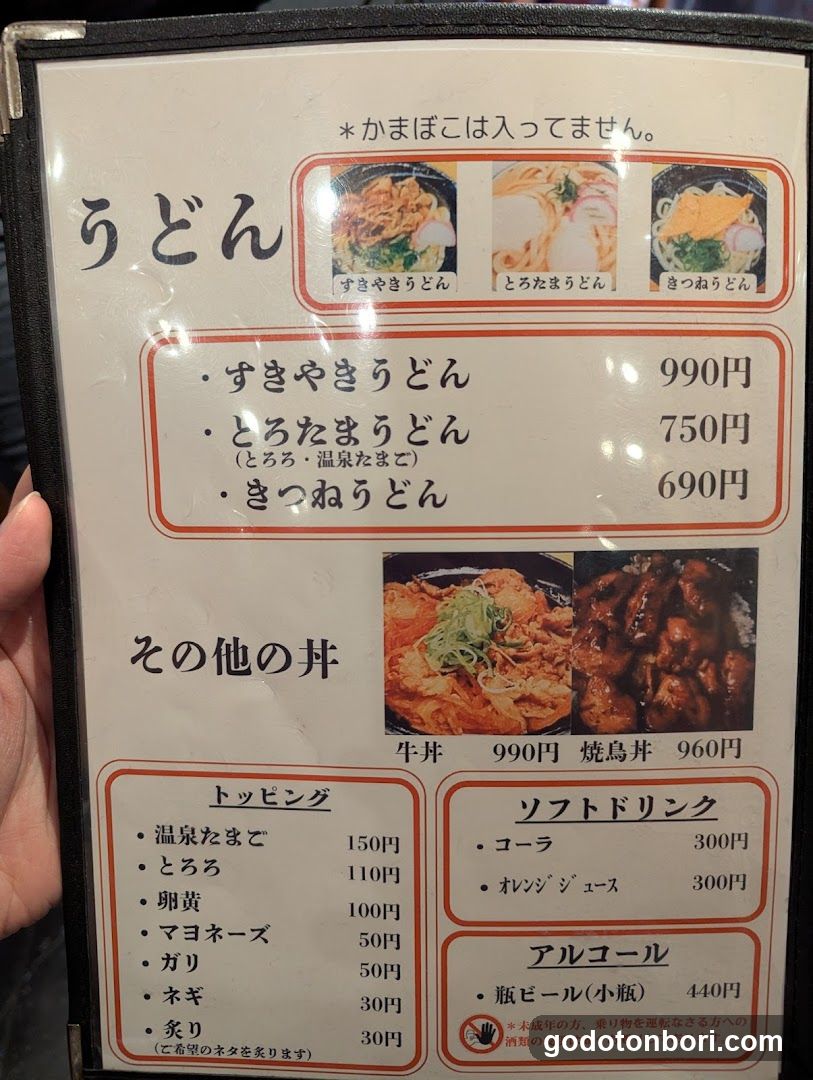 ＊かまぼこは入ってません。
うどん
すきやきうどん とろたまうどん きつねうどん
・すきやきうどん 990円
・とろたまうどん 750円
(とろろ・温泉たまご)
・きつねうどん 690円
その他の丼
牛丼 990円 焼鳥丼 960円
トッピング
・温泉たまご 150円
・とろろ 110円
・卵黄 100円
・マヨネーズ 50円
・ガリ 50円
・ネギ 30円
・炙り 30円
(ご希望のネタを炙ります)
ソフトドリンク
・コーラ 300円
・ｵﾚﾝｼﾞｼﾞｭｰｽ 300円
アルコール
・瓶ビール(小瓶) 440円
＊未成年の方、乗り物を運転なさる方への
酒類の
godotonbori.com